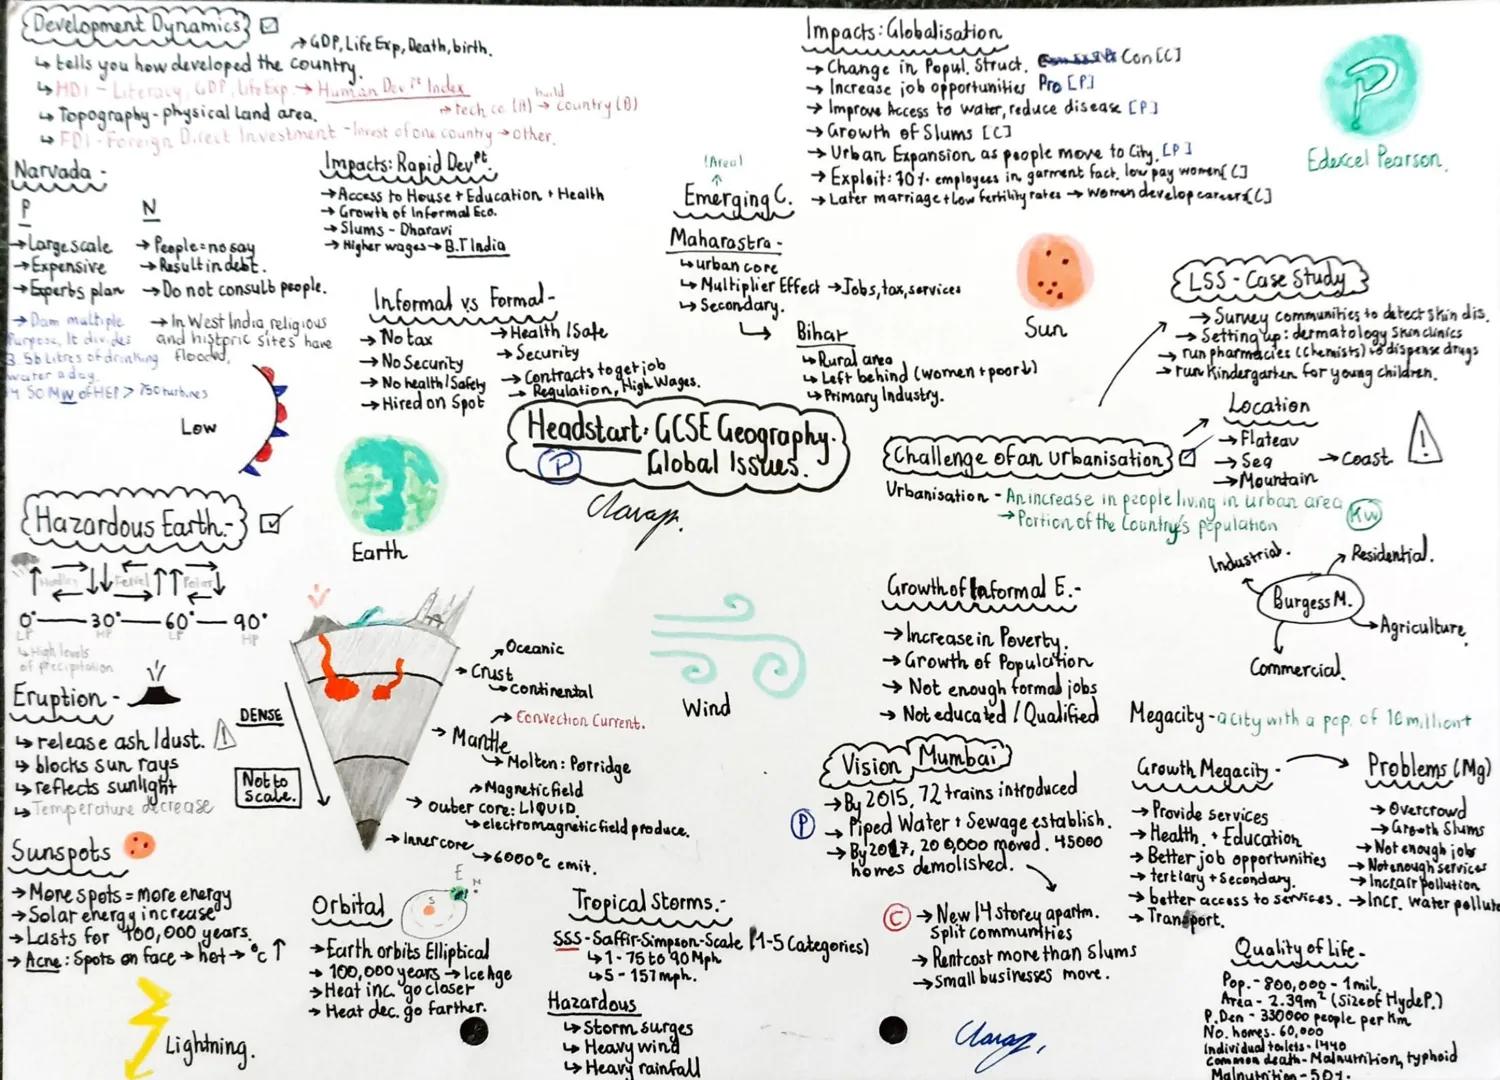 Development Dynamics
→ GDP, Life Exp, Death, birth.
↳ tells you how developed the country.
↳ HDI - Literacy, GDP, Life Exp. → Human Devpt Index
↳ Topography - physical land area.
→ tech co. (A) → build country (B)
↳ FDI - Foreign Direct Investment - Invest of one country → other.
Narvada -
P
→ Large scale
→ Expensive
→ Experts plan
→ Dam multiple
Purpose, It divides
3.5b Litres of drinking
water a day.
50 MW of HEP > 750 turbines
N
→ People = no say
→ Result in debt.
→ Do not consult people.
→ In West India, religious
and historic sites have
flooded.
Low
Impacts: Rapid Devpt.
→ Access to House + Education + Health
→ Growth of Informal Eco.
→ Slums - Dharavi
→ Higher wages → B.T India
Informal vs Formal -
→ No tax
→ No Security
→ No health/Safety
→ Hired on Spot
→ Health/Safe
→ Security
→ Contracts to get job
→ Regulation, High Wages.
(Area)
Emerging C.
Maharastra -
↳ urban core
↳ Multiplier Effect → Jobs, tax, services
↳ Secondary.
Bihar
↳ Rural area
↳ Left behind (women + poor↓)
↳ Primary Industry.
Impacts: Globalisation
→ Change in Popul. Struct. Con [C]
→ Increase job opportunities Pro [P]
→ Improve Access to water, reduce disease [P]
→ Growth of Slums [C]
→ Urban Expansion as people move to City. [P]
→ Exploit: 70% employees in garment fact. low pay women [C]
→ Later marriage + low fertility rates → women develop careers [C]
P
Edexcel Pearson.
Sun
LSS - Case Study
→ Survey communities to detect skin dis.
→ Setting up: dermatology skin clinics
→ run pharmacies (chemists) to dispense drugs
→ run Kindergarten for young children.
Headstart: GCSE Geography.
P Global Issues.
Earth
Challenge of an Urbanisation
Location
→ Flateau
→ Sea → Coast
→ Mountain
Urbanisation - An increase in people living in urban area
→ Portion of the Country's population
KW
Burgess M.
Industrial.
Residential.
Agriculture.
Commercial.
Hazardous Earth. -
Hadley Ferrel Polar
0° — 30° — 60° — 90°
LP HP LP HP
↳ High levels
of precipitation
Eruption -
↳ release ash/dust.
↳ blocks sun rays
↳ reflects sunlight
↳ Temperature decrease
DENSE
Not to
Scale.
→ Crust
Oceanic
continental
→ Mantle
→ Convection Current.
↳ Molten: Porridge
→ Magnetic field
→ Outer core: LIQUID.
↳ electromagnetic field produce.
→ Inner core
→ 6000°C emit.
Wind
Growth of Informal E. -
→ Increase in Poverty.
→ Growth of Population
→ Not enough formal jobs
→ Not educated / Qualified
Megacity - a city with a pop. of 10 million+
Growth Megacity -
→ Provide services
→ Health. + Education
→ Better job opportunities
→ tertiary + Secondary.
→ better access to services.
→ Transport.
Problems (Mg)
→ Overcrowd
→ Growth Slums
→ Not enough jobs
→ Not enough services
→ Incr air pollution
→ Incr. water pollute
Vision Mumbai
P
→ By 2015, 72 trains introduced
→ Piped Water + Sewage establish.
→ By 2017, 200,000 moved. 45000
homes demolished.
C
→ New 14 storey apartm.
Split communities
→ Rent cost more than Slums
→ Small businesses move.
Sunspots
→ More spots = more energy
→ Solar energy increase
→ Lasts for 400,000 years.
→ Acne: Spots on face → hot → °C ↑
Lightning.
Orbital
S
E
→ Earth orbits Elliptical
→ 100,000 years → Ice Age
→ Heat inc. go closer
→ Heat dec. go farther.
Tropical Storms. -
SSS - Saffir-Simpson-Scale (1-5 Categories)
↳ 1 - 75 to 90 Mph
↳ 5 - 157 mph.
Hazardous
↳ Storm surges
↳ Heavy wind
↳ Heavy rainfall
Quality of Life -
Pop. - 800,000 - 1 mil.
Area - 2.39m² (Size of Hyde P.)
P. Den - 330000 people per Km
No. homes - 60,000
Individual toilets - 1440
Common death - Malnutrition, typhoid
Malnutrition - 50%.